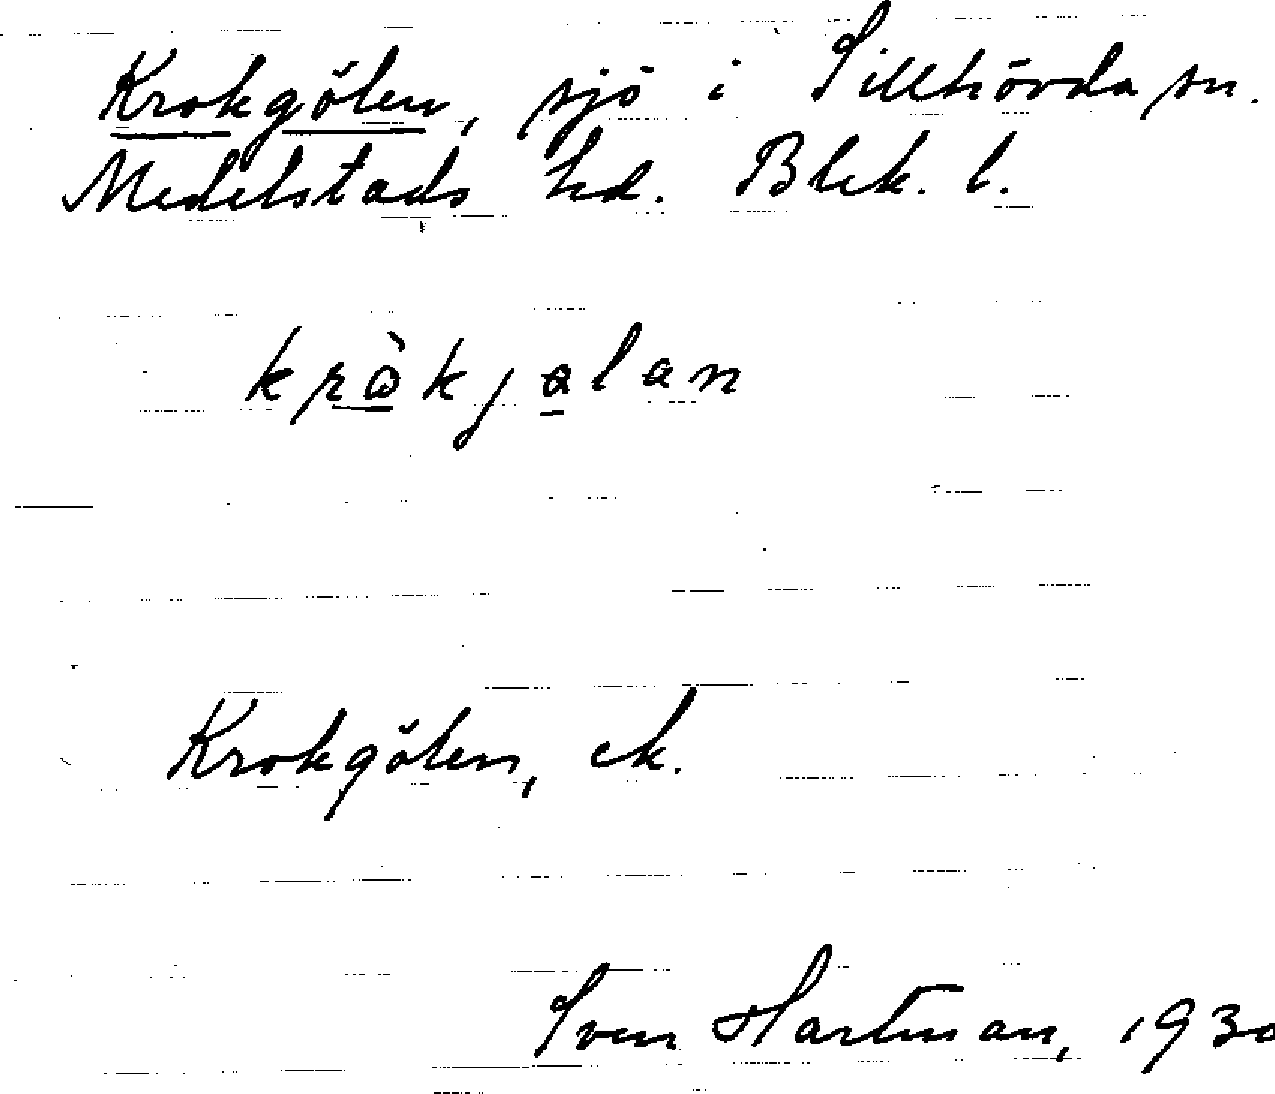 Krokgölen, sjö i Sillhövda sn.
Medelstads hd. Blek. l.
kròkjalan
Krokgölen, ek.
Sven Hartman, 1930